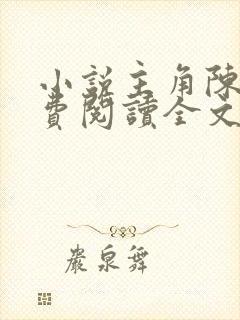 小說主角陳
費閱讀全文
嚴泉舞